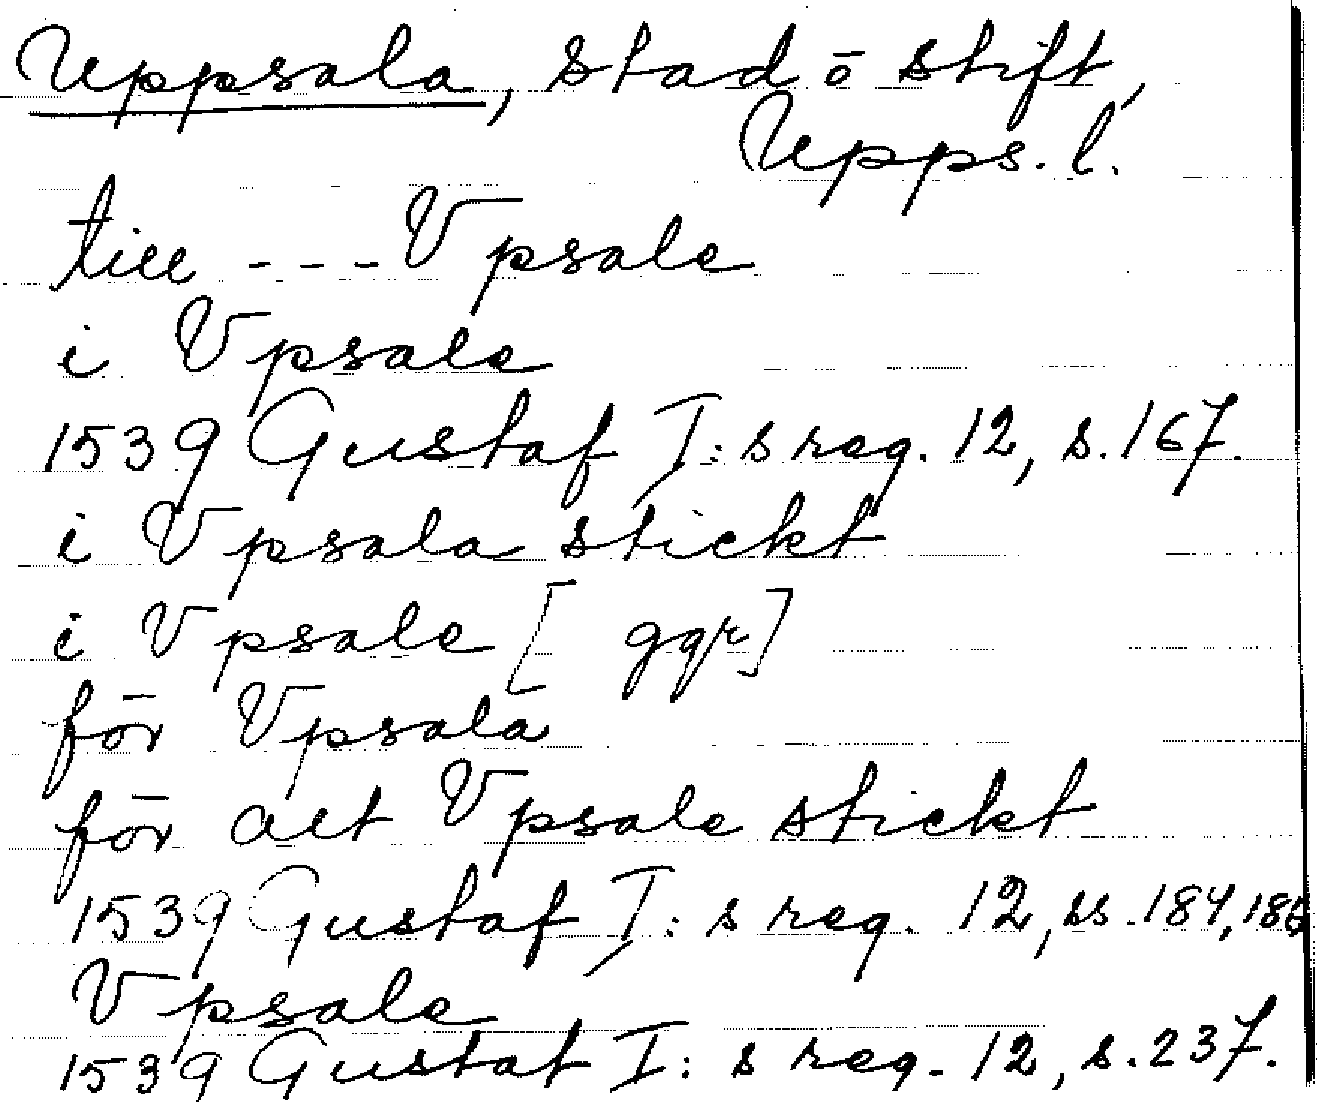 Uppsala, stad o stift,
Upps. l.
till --- Vpsale
i Vpsale
1539 Gustaf I:s reg. 12, s. 167.
i Vpsala stickt
i Vpsale [ ggr]
för Vpsala
för alt Vpsale stickt
1539 Gustaf I:s reg. 12, ss. 184, 186
Vpsale
1539 Gustaf I:s reg. 12, s. 237.